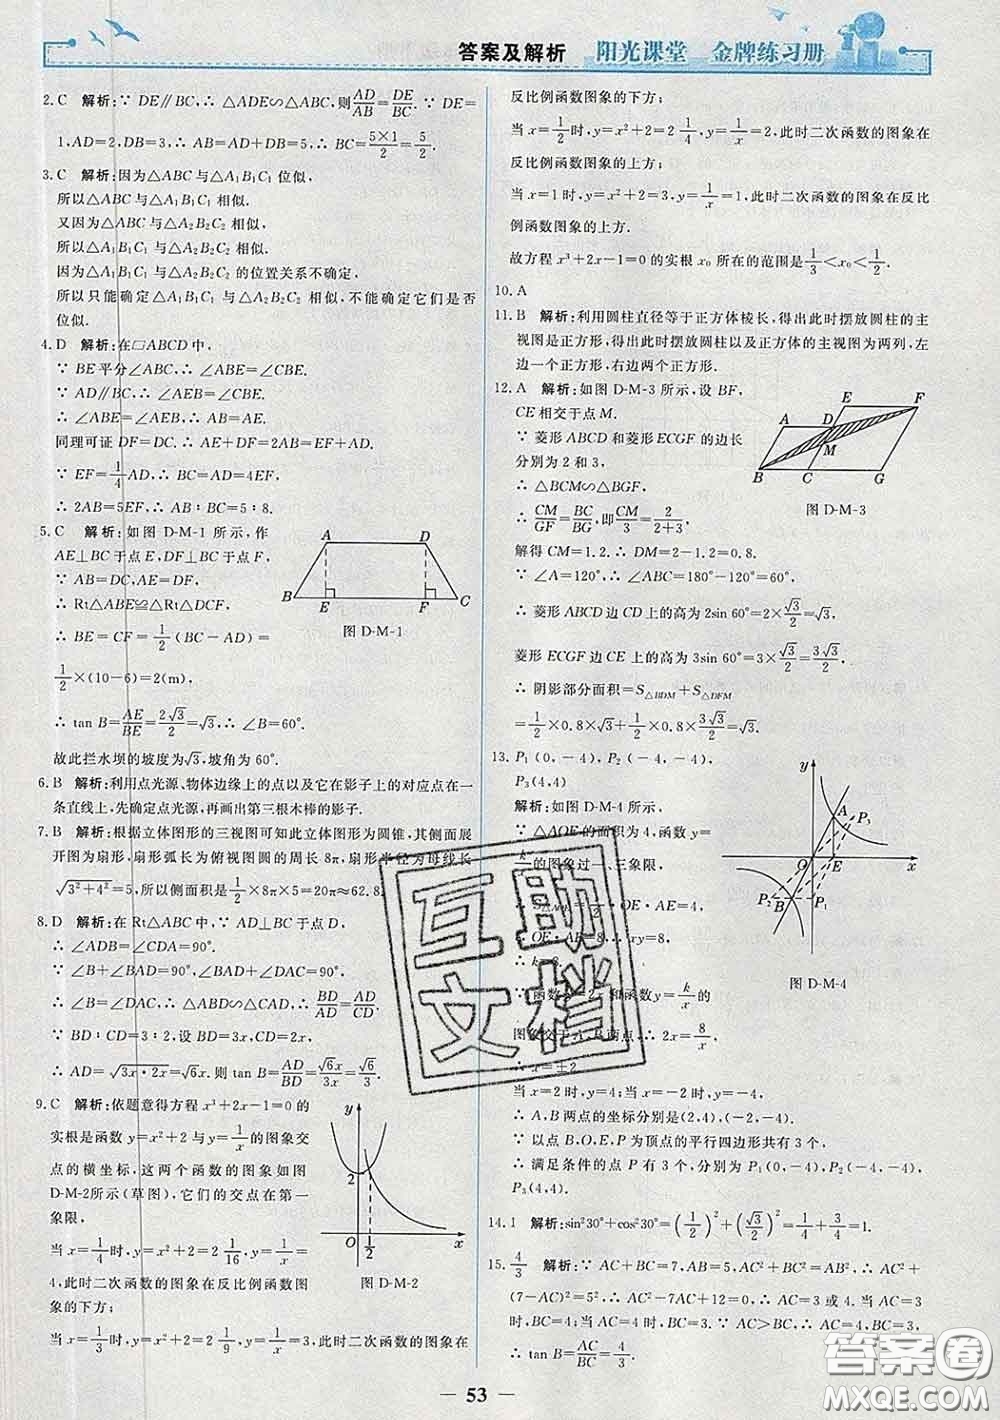 答案及解析 阳光课堂 金牌练习册
2. C 解析:∵ DE∥BC,∴ △ADE∽△ABC,则AD/AB=DE/BC. ∵ DE=
1,AD=2,DB=3,∴ AB=AD+DB=5,∴ BC=5×1/2=5/2.
3. C 解析:因为△ABC与△A₁B₁C₁位似,
所以△ABC 与△A₁B₁C₁相似.
又因为△ABC 与△A₂B₂C₂相似,
所以△A₁B₁C₁ 与△A₂B₂C₂相似.
因为△A₁B₁C₁ 与△A₂B₂C₂ 的位置关系不确定,
所以只能确定△A₁B₁C₁ 与△A₂B₂C₂ 相似,不能确定它们是否
位似.
4. D 解析:在▱ABCD中,
∵ BE平分∠ABC,∴ ∠ABE=∠CBE.
∵ AD∥BC,∴ ∠AEB=∠CBE.
∴ ∠ABE=∠AEB,∴ AB=AE.
同理可证 DF=DC. ∴ AE+DF=2AB=EF+AD.
∵ EF=1/4AD,∴ AD=4EF,
∴ 2AB=5EF,∴ AB:BC=5:8.
5. C 解析:如图 D-M-1 所示,作
AE⊥BC于点 E,DF⊥BC于点 F,
∵ AB=DC,AE=DF,
∴ Rt△ABE≌Rt△DCF,
∴ BE=CF=1/2(BC-AD)=
1/2×(10-6)=2(m),
∴ tan B=AE/BE=2√3/2=√3,∴ ∠B=60°.
故此拦水坝的坡度为√3,坡角为60°.
A D B E F C
图 D-M-1
6. B 解析:利用点光源、物体边缘上的点以及它在影子上的对应点在一
条直线上,先确定点光源,再画出第三根木棒的影子.
7. B 解析:根据立体图形的三视图可知此立体图形为圆锥,其侧面展
开图为扇形,扇形弧长为俯视图圆的周长 8π,扇形半径为母线长
√(3²+4²)=5,所以侧面积是1/2×8π×5=20π≈62.8.
8. D 解析:在 Rt△ABC 中,∵ AD⊥BC于点 D,
∴ ∠ADB=∠CDA=90°.
∵ ∠B+∠BAD=90°,∠BAD+∠DAC=90°.
∴ ∠B=∠DAC,∴ △ABD∽△CAD,∴ BD/AD=AD/CD.
∵ BD:CD=3:2,设 BD=3x,CD=2x,
∴ AD=√(3x·2x)=√6x.则 tan B=AD/BD=√6x/3x=√6/3.
9. C 解析:依题意得方程 x³+2x-1=0的
实根是函数 y=x²+2与 y=1/x的图象交
点的横坐标,这两个函数的图象如图
D-M-2所示(草图),它们的交点在第一
象限,
当 x=1/4时,y=x²+2=2 1/16,y=1/x=
4,此时二次函数的图象在反比例函数图
象的下方;
y 2 O 1/2 x
图 D-M-2
当 x=1/3时,y=x²+2=2 1/9,y=1/x=3,此时二次函数的图象在
反比例函数图象的下方;
当 x=1/2时,y=x²+2=2 1/4,y=1/x=2,此时二次函数的图象在
反比例函数图象的上方;
当 x=1时,y=x²+2=3,y=1/x=1,此时二次函数的图象在反比
例函数图象的上方.
故方程 x³+2x-1=0的实根 x₀ 所在的范围是1/3<x₀<1/2.
10. A
11. B 解析:利用圆柱直径等于正方体棱长,得出此时摆放圆柱的主
视图是正方形,得出此时摆放圆柱以及正方体的主视图为两列,左
边一个正方形,右边两个正方形.
12. A 解析:如图 D-M-3 所示,设 BF,
CE相交于点 M.
∵ 菱形 ABCD 和菱形 ECGF 的边长
分别为 2 和 3,
∴ △BCM∽△BGF.
∴ CM/GF=BC/BG,即CM/3=2/(2+3).
解得 CM=1.2. ∴ DM=2-1.2=0.8.
∵ ∠A=120°,∴ ∠ABC=180°-120°=60°.
∴ 菱形 ABCD 边 CD 上的高为 2sin 60°=2×√3/2=√3,
菱形 ECGF 边 CE 上的高为 3sin 60°=3×√3/2=3√3/2.
∴ 阴影部分面积=S△BDM+S△DFM
=1/2×0.8×√3+1/2×0.8×3√3/2=√3.
E F A D M B C G
图 D-M-3
13. P₁(0,-4),P₂(-4,-4),
P₃(4,4)
解析:如图 D-M-4 所示,
∵ △AOE的面积为 4,函数 y=
k/x的图象过一、三象限,
·OE·AE=4,
∴ OE·AE=8,∴ xy=8,
∴ k=8.
∵ 函数y=2x和函数y=k/x的
图象交于A、B两点,∴ 2x=8/x,
∴ x=±2
y A P₃ O E x P₂ B P₁
图 D-M-4
当 x=2时,y=4;当 x=-2时,y=-4,
∴ A、B两点的坐标分别是(2,4),(-2,-4).
∵ 以点 B、O、E、P 为顶点的平行四边形共有 3 个,
∴ 满足条件的点 P 有 3 个,分别为 P₁(0,-4),P₂(-4,-4),
P₃(4,4).
14. 1 解析:sin²30°+cos²30°=(1/2)²+(√3/2)²=1/4+3/4=1.
15. 4/3 解析:∵ AC+BC=7,AB=5,AC²+BC²=AB²,∴ AC²+
(7-AC)²=5²,∴ AC²-7AC+12=0,∴ AC=3 或 4. 当 AC=3
时,BC=4;当 AC=4 时,BC=3. ∵ AC>BC,∴ AC=4,BC=3,
∴ tan B=AC/BC=4/3.
53
互助文档
答案圈
MXQE.COM